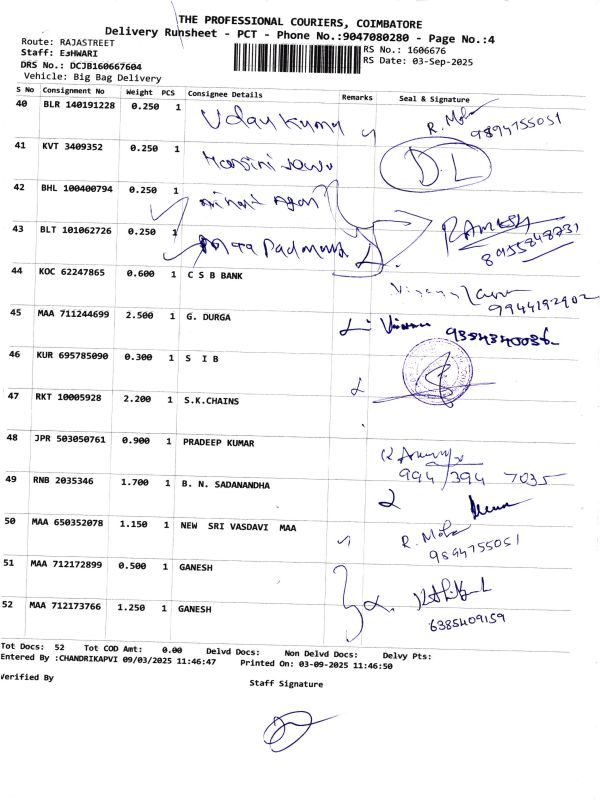 THE PROFESSIONAL COURIERS, COIMBATORE
Delivery Runsheet - PCT - Phone No.:9047080280 - Page No.:4
Route: RAJASTREET
RS No.: 1606676
Staff: EsHWARI
RS Date: 03-Sep-2025
DRS No.: DCJB160667604
Vehicle: Big Bag Delivery
S No Consignment No Weight PCS Consignee Details Remarks Seal & Signature
40 BLR 140191228 0.250 1 Uday Kumar R. Moha
9894755051
41 KVT 3409352 0.250 1 D.L
42 BHL 100400794 0.250 1
43 BLT 101062726 0.250 1 RAMESH
8955848731
44 KOC 62247865 0.600 1 C S B BANK
9944192902
45 MAA 711244699 2.500 1 G. DURGA
46 KUR 695785090 0.300 1 S I B
47 RKT 10005928 2.200 1 S.K.CHAINS
48 JPR 503050761 0.900 1 PRADEEP KUMAR
994 394 7035
49 RNB 2035346 1.700 1 B. N. SADANANDHA
50 MAA 650352078 1.150 1 NEW SRI VASDAVI MAA R. Moha
9894755051
51 MAA 712172899 0.500 1 GANESH
52 MAA 712173766 1.250 1 GANESH
6385409159
Tot Docs: 52 Tot COD Amt: 0.00 Delvd Docs: Non Delvd Docs: Delvy Pts:
Entered By :CHANDRIKAPVI 09/03/2025 11:46:47 Printed On: 03-09-2025 11:46:50
Verified By
Staff Signature